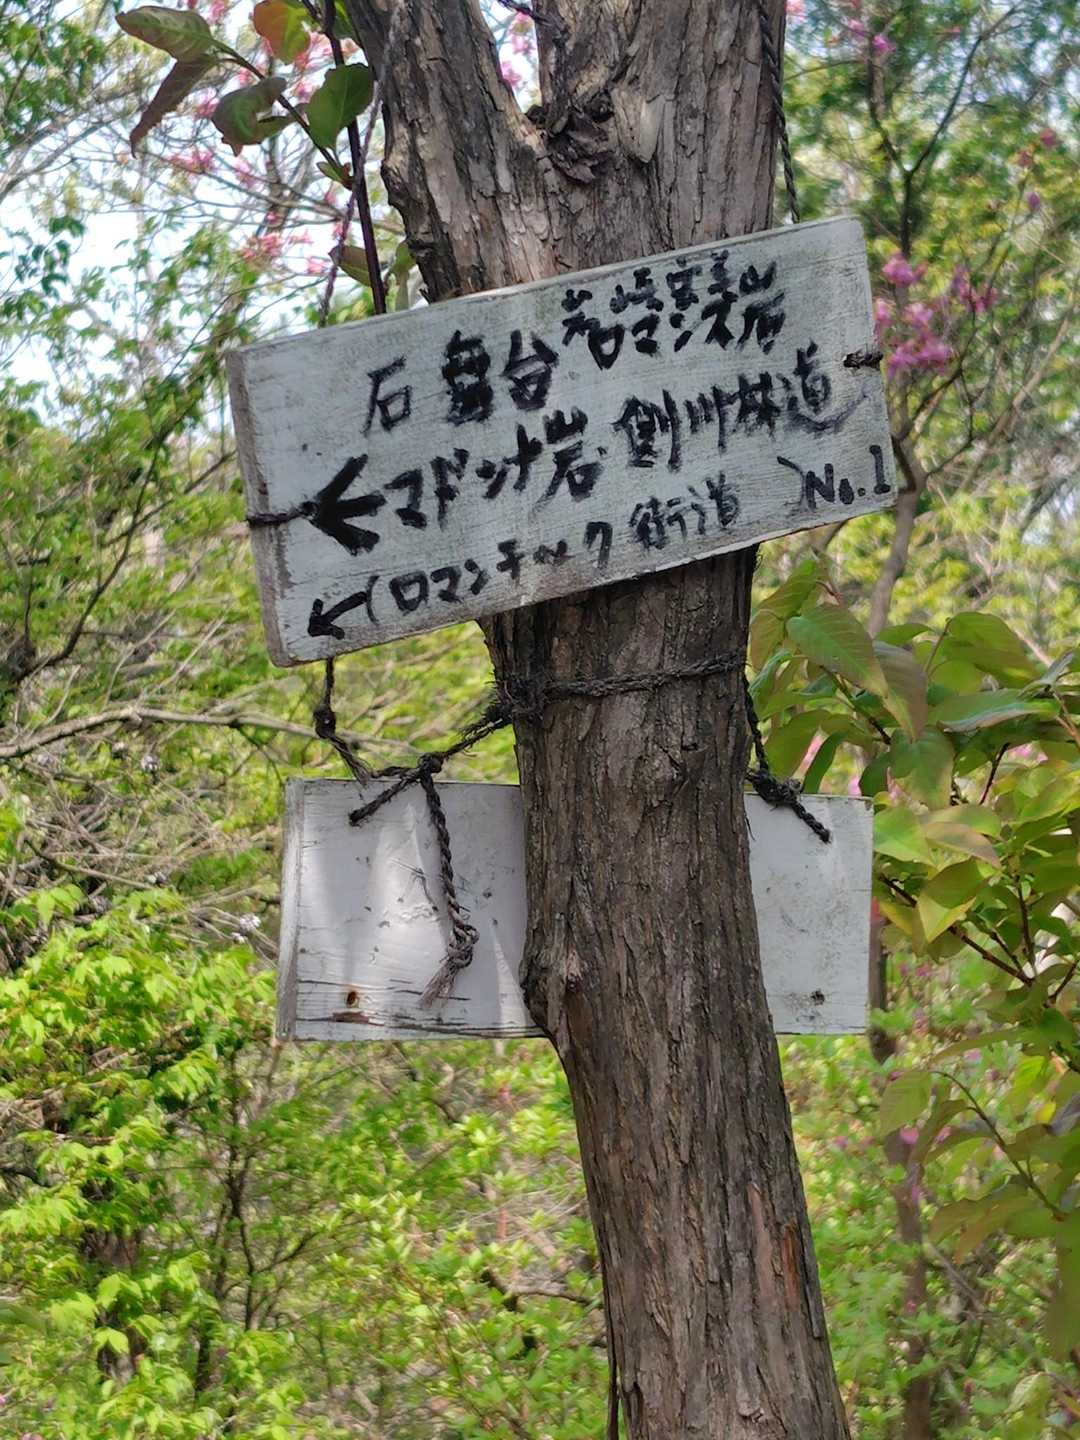 石盤台 ロマンス岩
←マドンナ岩 側川林道
←(ロマンチック街道)No.1